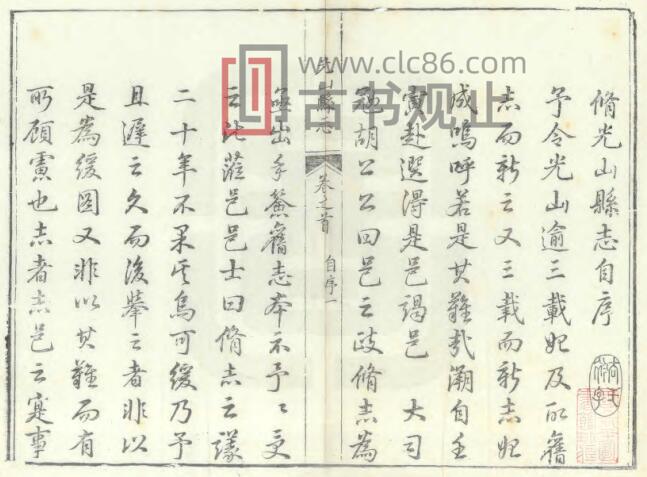 脩光山縣志自序
予令光山逾三載妃及取舊
志而新之又三載而新志妃
成嗚呼若是其難哉溯自壬
寅赴選得是邑謁邑大司
寇胡公公曰邑之政脩志為
光山縣志
卷之首
自序一
亟出手篋舊志本示予予受
之比蒞邑邑士曰脩志之議
二十年不果矣烏可緩乃予
且遲之久而後舉之者非以
是為緩圖又非以其難而有
所顧慮也志者志邑之寔事
www.clc86.com
古书观止